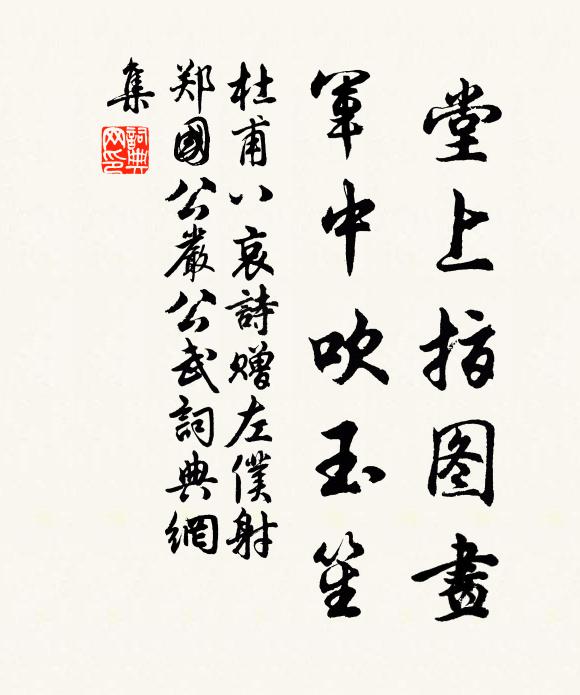 堂上指图畫
軍中吹玉笙
杜甫八哀詩贈左僕射
郑國公嚴公武詞典網
集
詞典网印